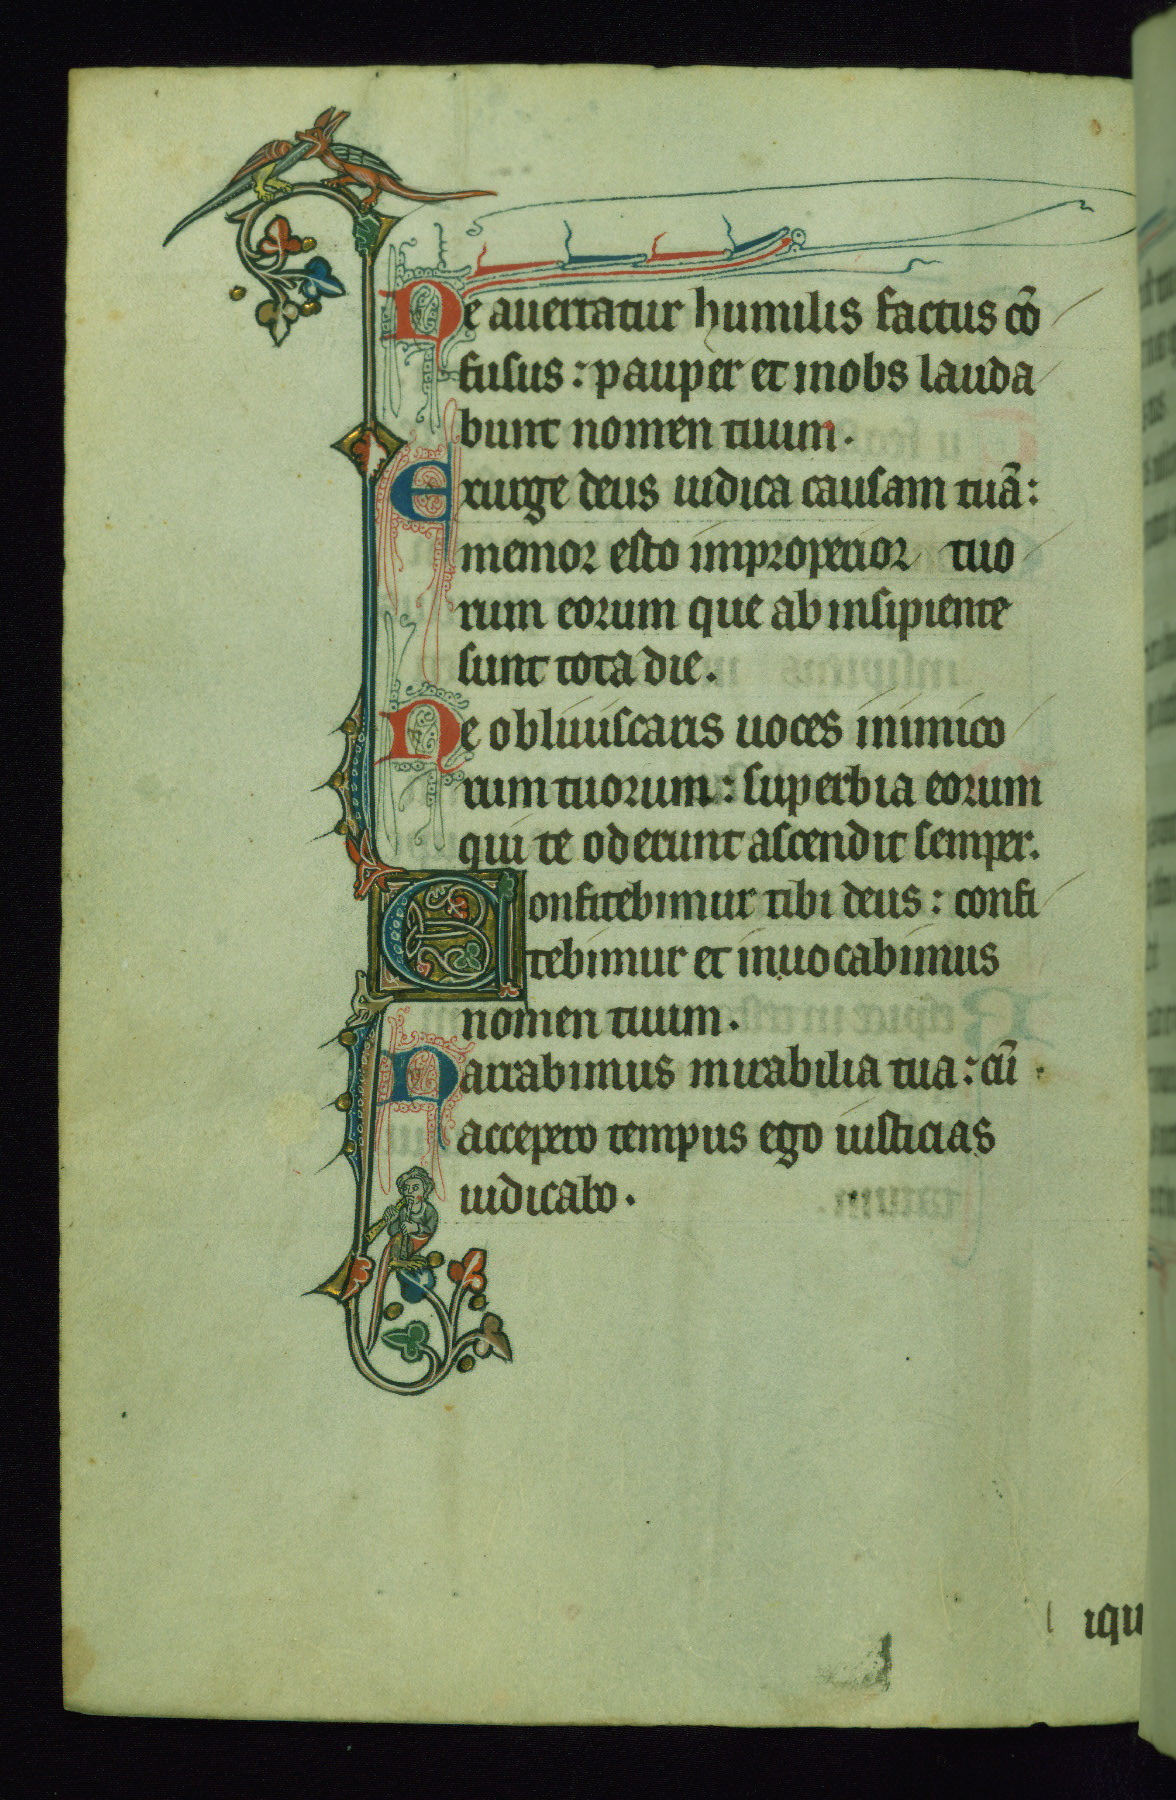 Ne auertatur humilis factus cō
fusus : pauper et inobs lauda
bunt nomen tuum.
Exurge deus iudica causam tuā :
memor esto improperior tuo
rum eorum que ab insipiente
sunt tota die.
Ne obliuiscaris uoces inimico
rum tuorum : superbia eorum
qui te oderunt ascendit semper.
Confitebimur tibi deus : confi
tebimur et inuocabimus
nomen tuum.
Narrabimus mirabilia tua : cū
accepero tempus ego iusticias
iudicabo.
iqu